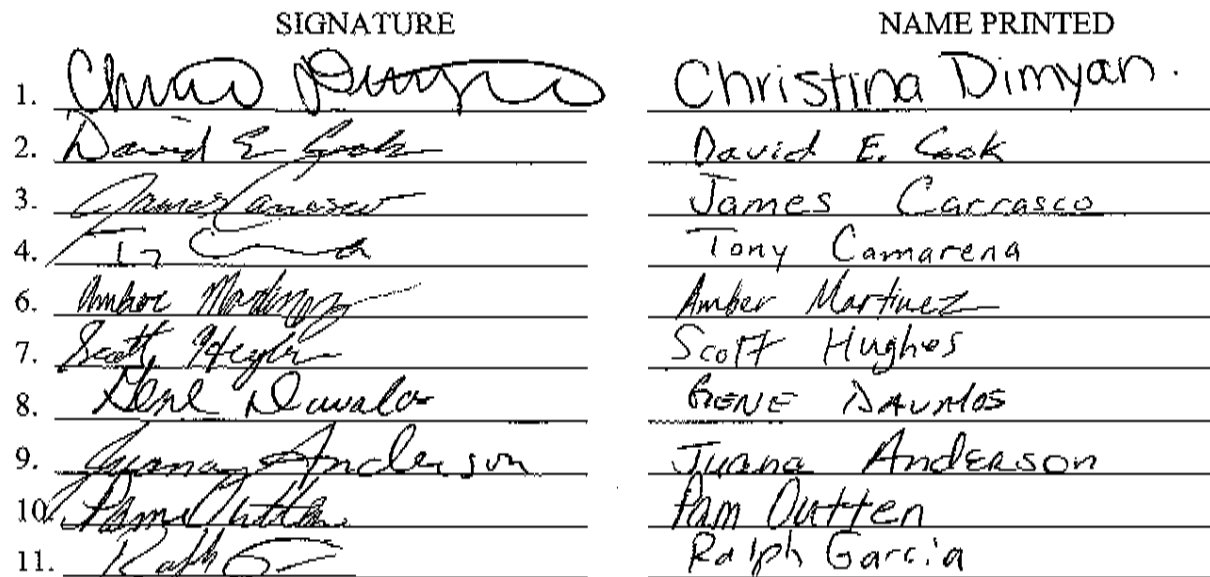 SIGNATURE NAME PRINTED
1. Christina Dimyan.
2. David E Cook David E. Cook
3. James Carrasco James Carrasco
4. Tony Camarena
6. Amber Martinez Amber Martinez
7. Scott Hughes Scott Hughes
8. Gene Davalos GENE DAVALOS
9. Juana Anderson Juana Anderson
10. Pam Outten Pam Outten
11. Ralph G Ralph Garcia